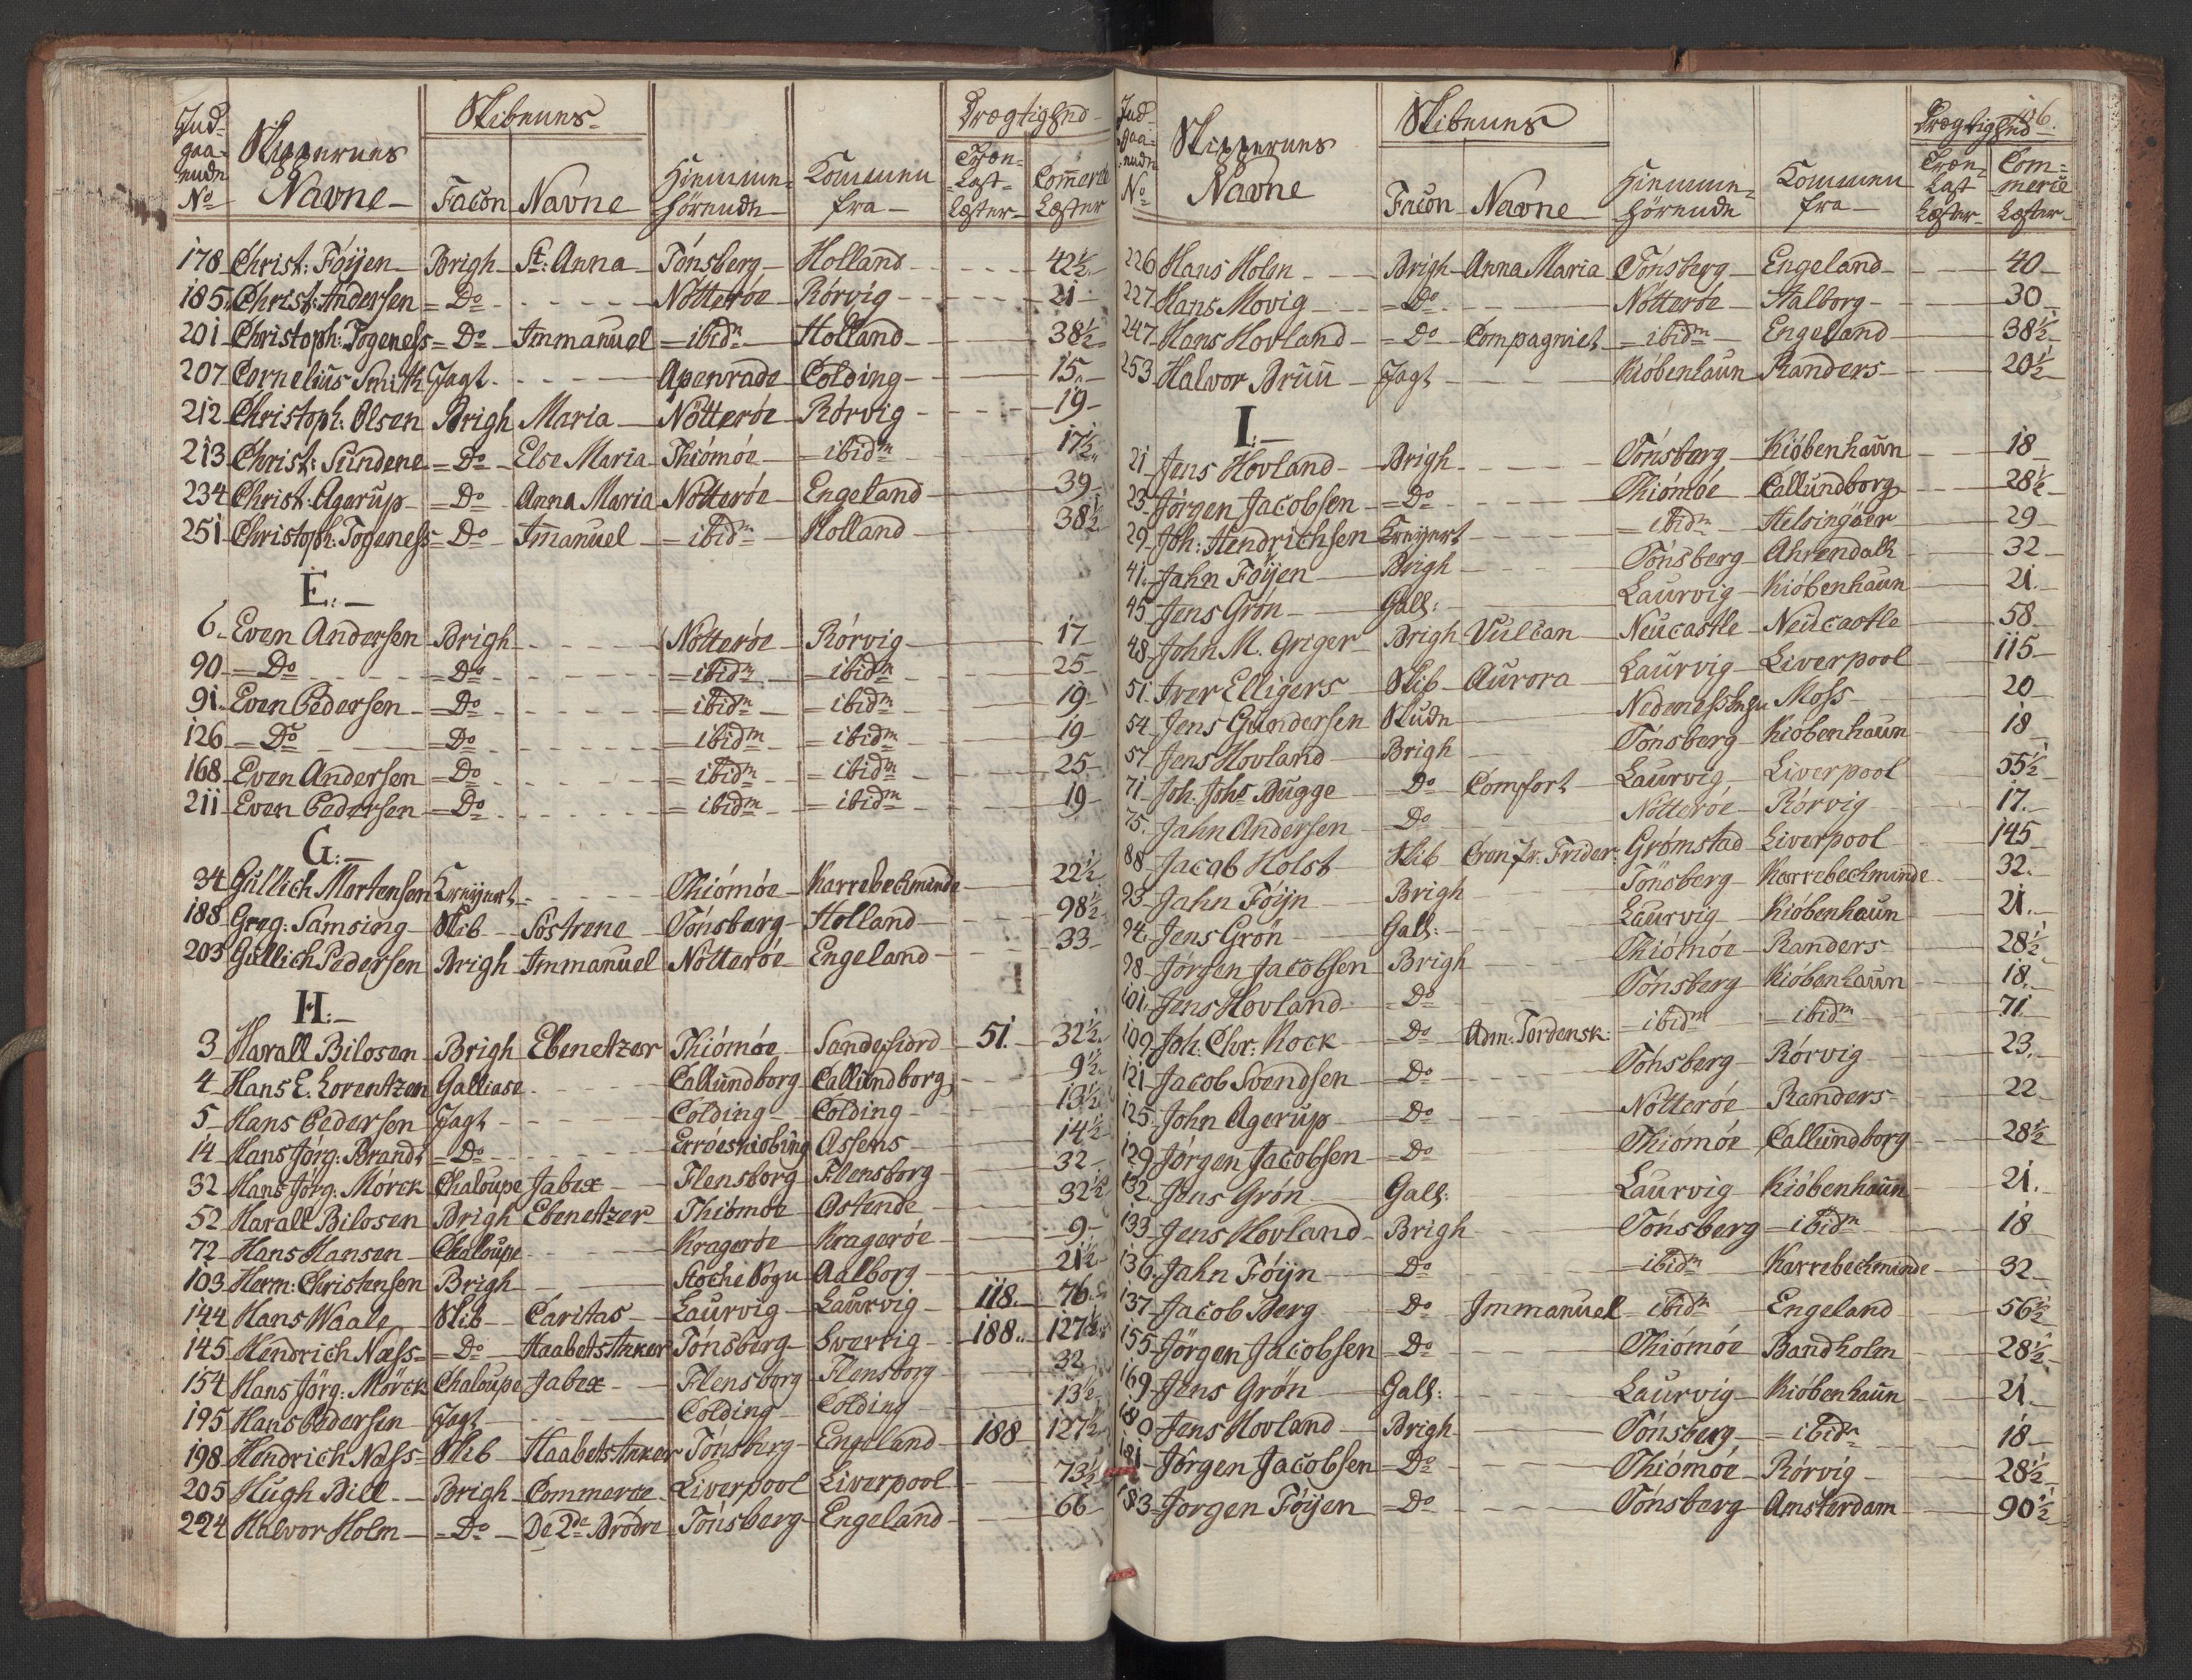 Ind-
gaa-
ende
No
Skippernes
Navne
Skibenes
Facon
Navne
Hiemme-
hörende
Kommen
fra
Drægtighed
Træn-
Last
Læster
Commerce
Læster
178 Christ: Föÿen Brigh St: Anna Tönsberg Holland 42½
185 Christ: Andersen Do Nötteröe Rörvig 21
201 Christoph: Togeness Do Immanuel ibidm Holland 38½
207 Cornelius Smith Jagt Apenrade Colding 15
212 Christoph: Olsen Brigh Maria Nötteröe Rörvig 19
213 Christ: Sundene Do Else Maria Thiömöe ibidm 17½
234 Christ: Agerup Do Anna Maria Nötteröe Engeland 39
251 Christoph: Togeness Do Im̄anuel ibidm Holland 38½
E:
6 Even Andersen Brigh Nötteröe Rörvig 17
90 Do Do ibidm ibidm 25
91 Even Pedersen Do ibidm ibidm 19
126 Do Do ibidm ibidm 19
168 Even Andersen Do ibidm ibidm 25
211 Even Pedersen Do ibidm ibidm 19
G:
34 Gullich Mortensen Kreÿert Thiömöe Karrebechminde 22½
188 Greg: Samsing Skib Söstrene Tönsberg Holland 98½
203 Gullich Pedersen Brigh Immanuel Nötteröe Engeland 33
H:
3 Harall Bilosen Brigh Ebenetzer Thiömöe Sandefiord 51. 32½
4 Hans E. Lorentzen Galliase Callundborg Callundborg 9½
5 Hans Pedersen Jagt Colding Colding 13½
14 Hans Jörg: Brandt Do Erröeskiobing Assens 14½
32 Hans Jörg: Mörck Chaloupe Jabex Flensborg Flensborg 32
52 Harall Bilosen Brigh Ebenetzer Thiömöe Ostende 32½
72 Hans Hansen Chaloupe Krageröe Krageröe 9
103 Herm: Christensen Brigh Stoche Sogn Aalborg 21½
144 Hans Waale Skib Caritas Laurvig Laurvig 118. 76
145 Hendrich Næss Do Haabets Anker Tönsberg Swerrig 188. 127½
154 Hans Jörg: Mörck Chaloupe Jabex Flensborg Flensborg 32
195 Hans Pedersen Jagt Colding Colding 13½
198 Hendrich Næss Skib Haabets Anker Tönsberg Engeland 188 127½
205 Hugh Bill Brigh Commerce Liverpool Liverpool 73½
224 Halvor Holm Do De 2de Brödre Tönsberg Engeland 66
106.
Ind-
gaa-
ende
No
Skippernes
Navne
Skibenes
Facon
Navne
Hiemme-
hörende
Kommen
fra
Drægtighed
Træn-
Last
Læster
Com-
merce
Læster
226 Hans Holm Brigh Anna Maria Tönsberg Engeland 40
227 Hans Movig Do Nötteröe Aalborg 30
247 Hans Hovland Do Compagniet ibidm Engeland 38½
253 Halvor Bruu Jagt Kiöbenhaun Randers 20½
I:
21 Jens Hovland Brigh Tönsberg Kiöbenhavn 18
23 Jörgen Jacobsen Do Thiömöe Callundborg 28½
29 Joh: Hendrichsen Kreÿert ibidm Helsingöer 29
41 Jahn Föÿen Brigh Tönsberg Ahrendalh 32
45 Jens Grön Gall: Laurvig Kiöbenhaun 21.
48 John M. Griger Brigh Vulcan Neucastle Neucastle 58
51 Iver Elligers Skib Aurora Laurvig Liverpool 115
54 Jens Gundersen Skude Moss 20
57 Jens Hovland Brigh Tönsberg Kiöbenhaun 18
71 Joh. Johs Bugge Do Comfort Laurvig Liverpool 55½
75 Jahn Andersen Do Nötteröe Rörvig 17.
88 Jacob Holst Skib Cron Pr. Frider: Grömstad Liverpool 145
93 Jahn Föÿn Brigh Tönsberg Karrebechminde 32.
94 Jens Grön Gall: Laurvig Kiöbenhaun 21.
98 Jörgen Jacobsen Brigh Thiömöe Randers 28½
101 Jens Hovland Do Tönsberg Kiöbenhaun 18.
109 Joh: Chr: Kock Do Adm: Tordensk: ibidm ibidm 71
121 Jacob Svendsen Do Tönsberg Rörvig 23.
125 John Agerup Do Nötteröe Randers 22
129 Jörgen Jacobsen Do Thiömöe Callundborg 28½
132 Jens Grön Gall: Laurvig Kiöbenhaun 21.
133 Jens Hovland Brigh Tönsberg ibidm 18
136 Jahn Föÿn Do ibidm Karrebechminde 32
137 Jacob Berg Do Immanuel ibidm Engeland 56½
155 Jörgen Jacobsen Do Thiömöe Bandholm 28½
169 Jens Grön Gall: Laurvig Kiöbenhaun 21.
180 Jens Hovland Brigh Tönsberg ibidm 18
181 Jörgen Jacobsen Do Thiömöe Rörvig 28½
183 Jörgen Föÿen Do Tönsberg Amsterdam 90½